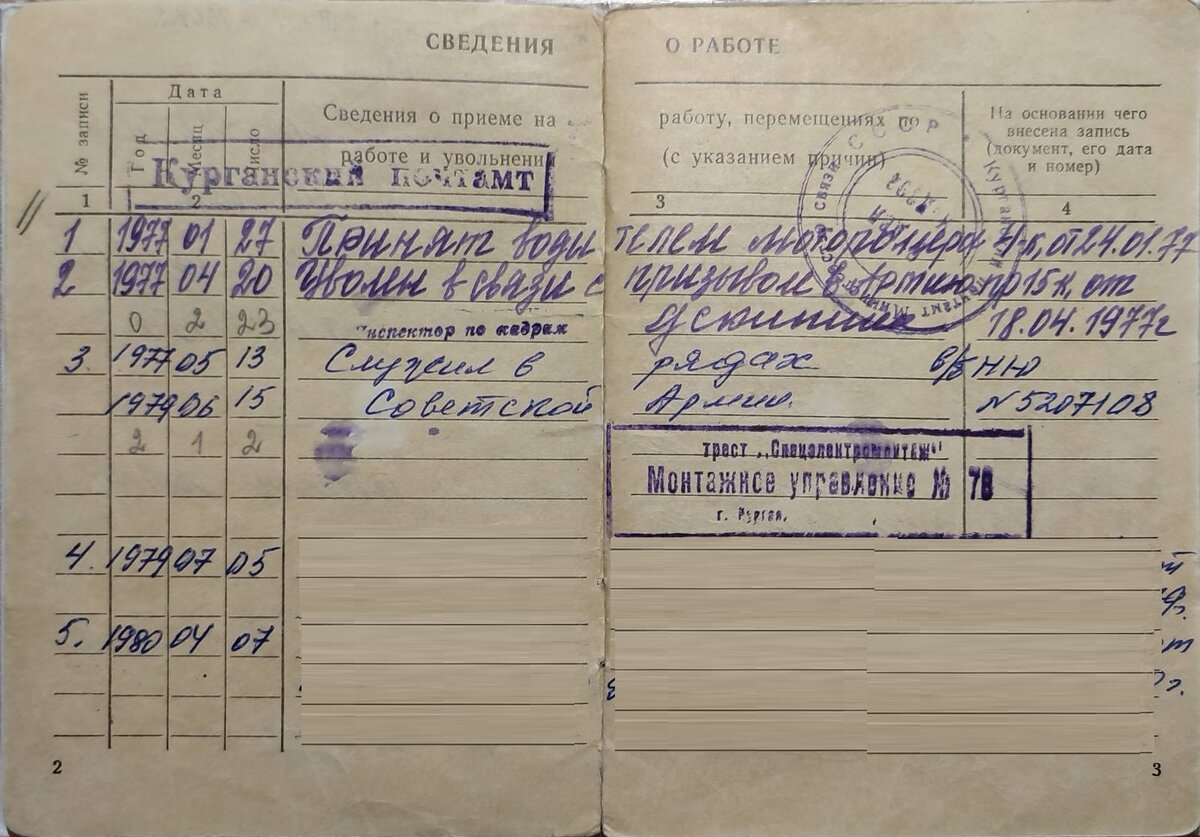 СВЕДЕНИЯ О РАБОТЕ
№ записи
Дата
Год
Месяц
Число
Сведения о приеме на работу, перемещениях по
работе и увольнении (с указанием причин)
На основании чего
внесена запись
(документ, его дата
и номер)
1 2 3 4
Курганский почтамт
1 1977 01 27 Принят водителем 24.01.77
2 1977 04 20 Уволен в связи с призывом в Армию пр 15 к, от
0 2 23 Инспектор по кадрам 18.04.1977г
3. 1977 05 13 Служил в рядах в/б НЮ
1979 06 15 Советской Армии. N5207108
2 1 2
трест „Спецэлектромонтаж"
Монтажное управление № 78
г. Курган.
4. 1979 07 05
5. 1980 04 07
2
3